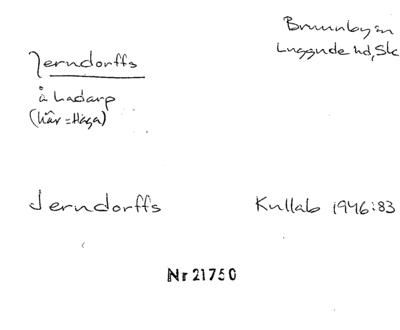 Brunnby sn
Luggude hd, Sk
Jerndorffs
å Ladarp
(här = Haga)
Jerndorffs
Kullab 1946:83
Nr 21750